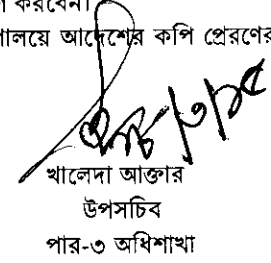 করবেন।
আদেশের কপি প্রেরণের
খালেদা আক্তার
উপসচিব
পার-৩ অধিশাখা